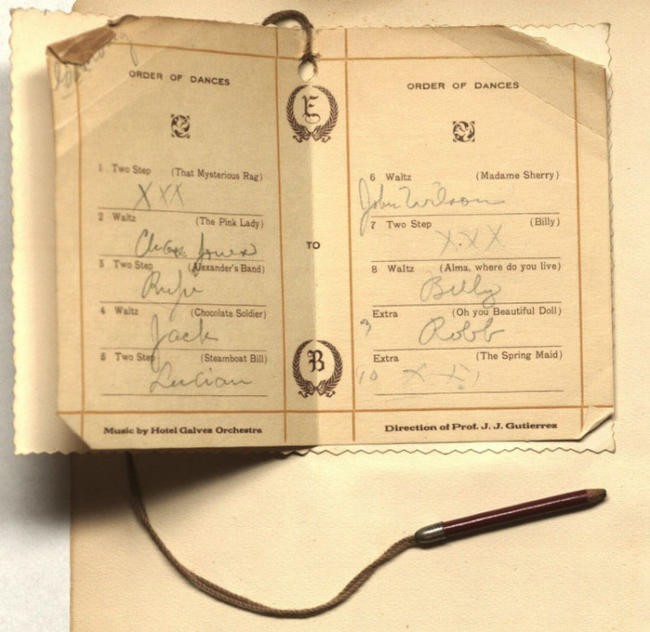 ORDER OF DANCES
1 Two Step (That Mysterious Rag)
XXX
2 Waltz (The Pink Lady)
Jones
3 Two Step (Alexander's Band)
Rufe
4 Waltz (Chocolate Soldier)
Jack
5 Two Step (Steamboat Bill)
Lucian
Music by Hotel Galvez Orchestra
E
TO
B
ORDER OF DANCES
6 Waltz (Madame Sherry)
John Wilson
7 Two Step (Billy)
X.XX
8 Waltz (Alma, where do you live)
Billy
Extra (Oh you Beautiful Doll)
9 Robb
Extra (The Spring Maid)
10 X X
Direction of Prof. J. J. Gutierrez